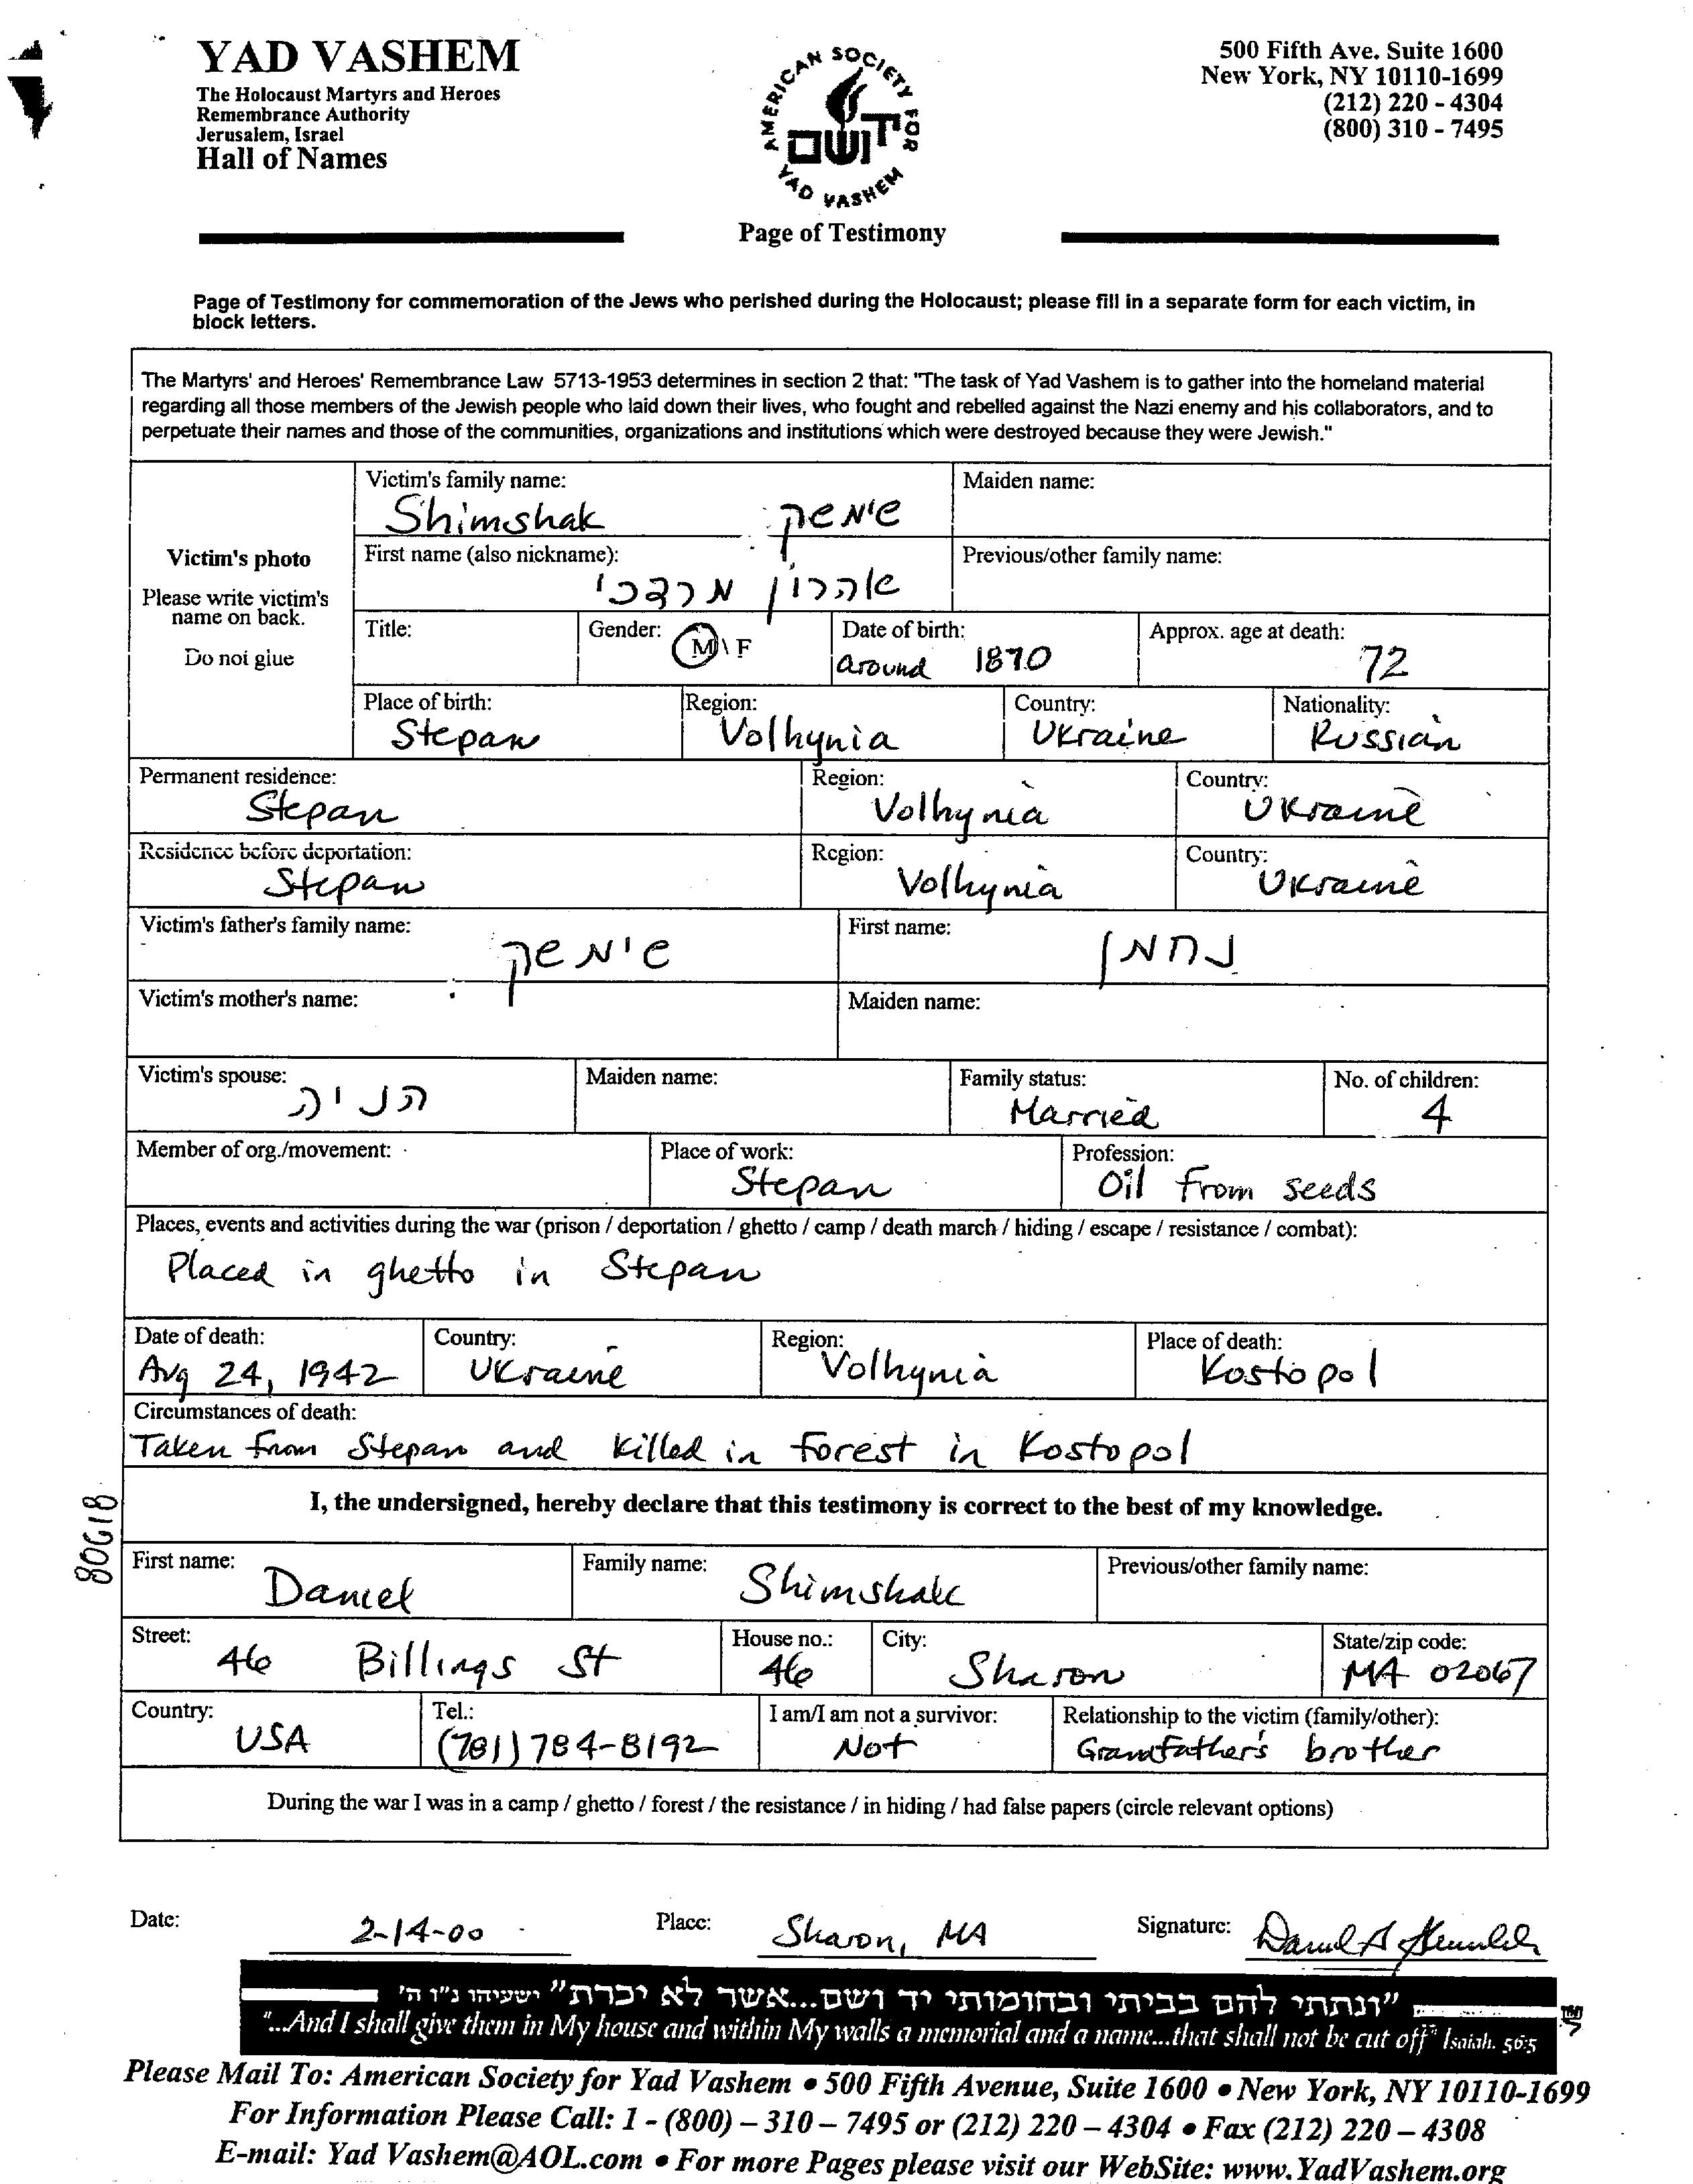 YAD VASHEM
The Holocaust Martyrs and Heroes
Remembrance Authority
Jerusalem, Israel
Hall of Names
AMERICAN SOCIETY FOR
יד ושם
YAD VASHEM
500 Fifth Ave. Suite 1600
New York, NY 10110-1699
(212) 220 - 4304
(800) 310 - 7495
Page of Testimony
Page of Testimony for commemoration of the Jews who perished during the Holocaust; please fill in a separate form for each victim, in
block letters.
The Martyrs' and Heroes' Remembrance Law 5713-1953 determines in section 2 that: "The task of Yad Vashem is to gather into the homeland material
regarding all those members of the Jewish people who laid down their lives, who fought and rebelled against the Nazi enemy and his collaborators, and to
perpetuate their names and those of the communities, organizations and institutions which were destroyed because they were Jewish."
Victim's photo
Please write victim's
name on back.
Do not glue
Victim's family name: Maiden name:
Shimshak שימשק
First name (also nickname): Previous/other family name:
אהרון מרדכי
Title: Gender: M \ F Date of birth: Approx. age at death:
around 1870 72
Place of birth: Region: Country: Nationality:
Stepan Volhynia Ukraine Russian
Permanent residence: Region: Country:
Stepan Volhynia Ukraine
Residence before deportation: Region: Country:
Stepan Volhynia Ukraine
Victim's father's family name: First name:
שימשק נחמן
Victim's mother's name: Maiden name:
Victim's spouse: Maiden name: Family status: No. of children:
הניה Married 4
Member of org./movement: Place of work: Profession:
Stepan Oil from seeds
Places, events and activities during the war (prison / deportation / ghetto / camp / death march / hiding / escape / resistance / combat):
Placed in ghetto in Stepan
Date of death: Country: Region: Place of death:
Aug 24, 1942 Ukraine Volhynia Kostopol
Circumstances of death:
Taken from Stepan and killed in forest in Kostopol
I, the undersigned, hereby declare that this testimony is correct to the best of my knowledge.
80618
First name: Family name: Previous/other family name:
Daniel Shimshak
Street: House no.: City: State/zip code:
46 Billings St 46 Sharon MA 02067
Country: Tel.: I am/I am not a survivor: Relationship to the victim (family/other):
USA (781) 784-8192 Not Grandfather's brother
During the war I was in a camp / ghetto / forest / the resistance / in hiding / had false papers (circle relevant options)
Date: 2-14-00 Place: Sharon, MA Signature: Daniel A Shimshak
"ונתתי להם בביתי ובחומותי יד ושם...אשר לא יכרת" ישעיהו נ"ו ה'
"...And I shall give them in My house and within My walls a memorial and a name...that shall not be cut off" Isaiah. 56:5
Please Mail To: American Society for Yad Vashem • 500 Fifth Avenue, Suite 1600 • New York, NY 10110-1699
For Information Please Call: 1 - (800) – 310 – 7495 or (212) 220 – 4304 • Fax (212) 220 – 4308
E-mail: Yad Vashem@AOL.com • For more Pages please visit our WebSite: www.YadVashem.org